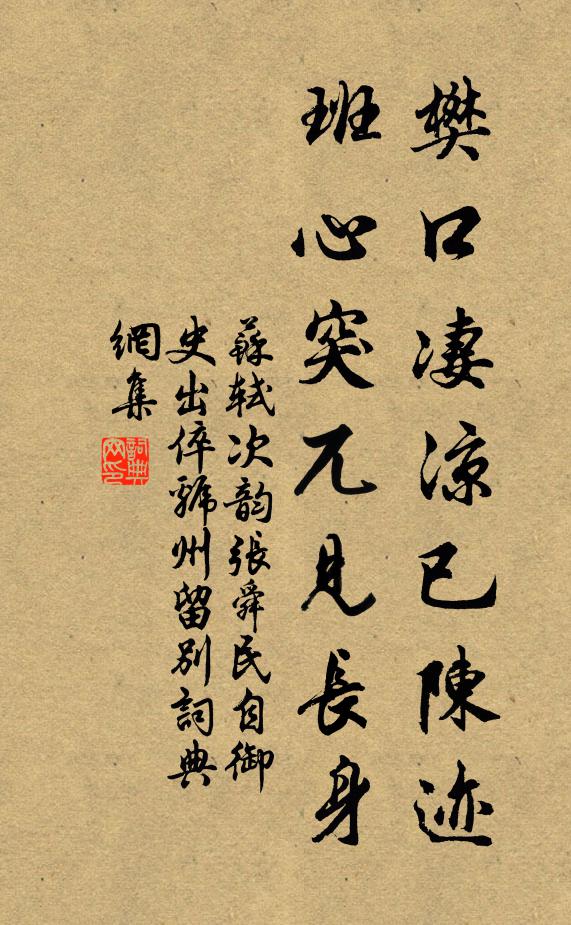 樊口凄涼已陳迹
班心突兀見長身
蘇軾次韵張舜民自御
史出倅虢州留别詞典
網集
詞典
网印